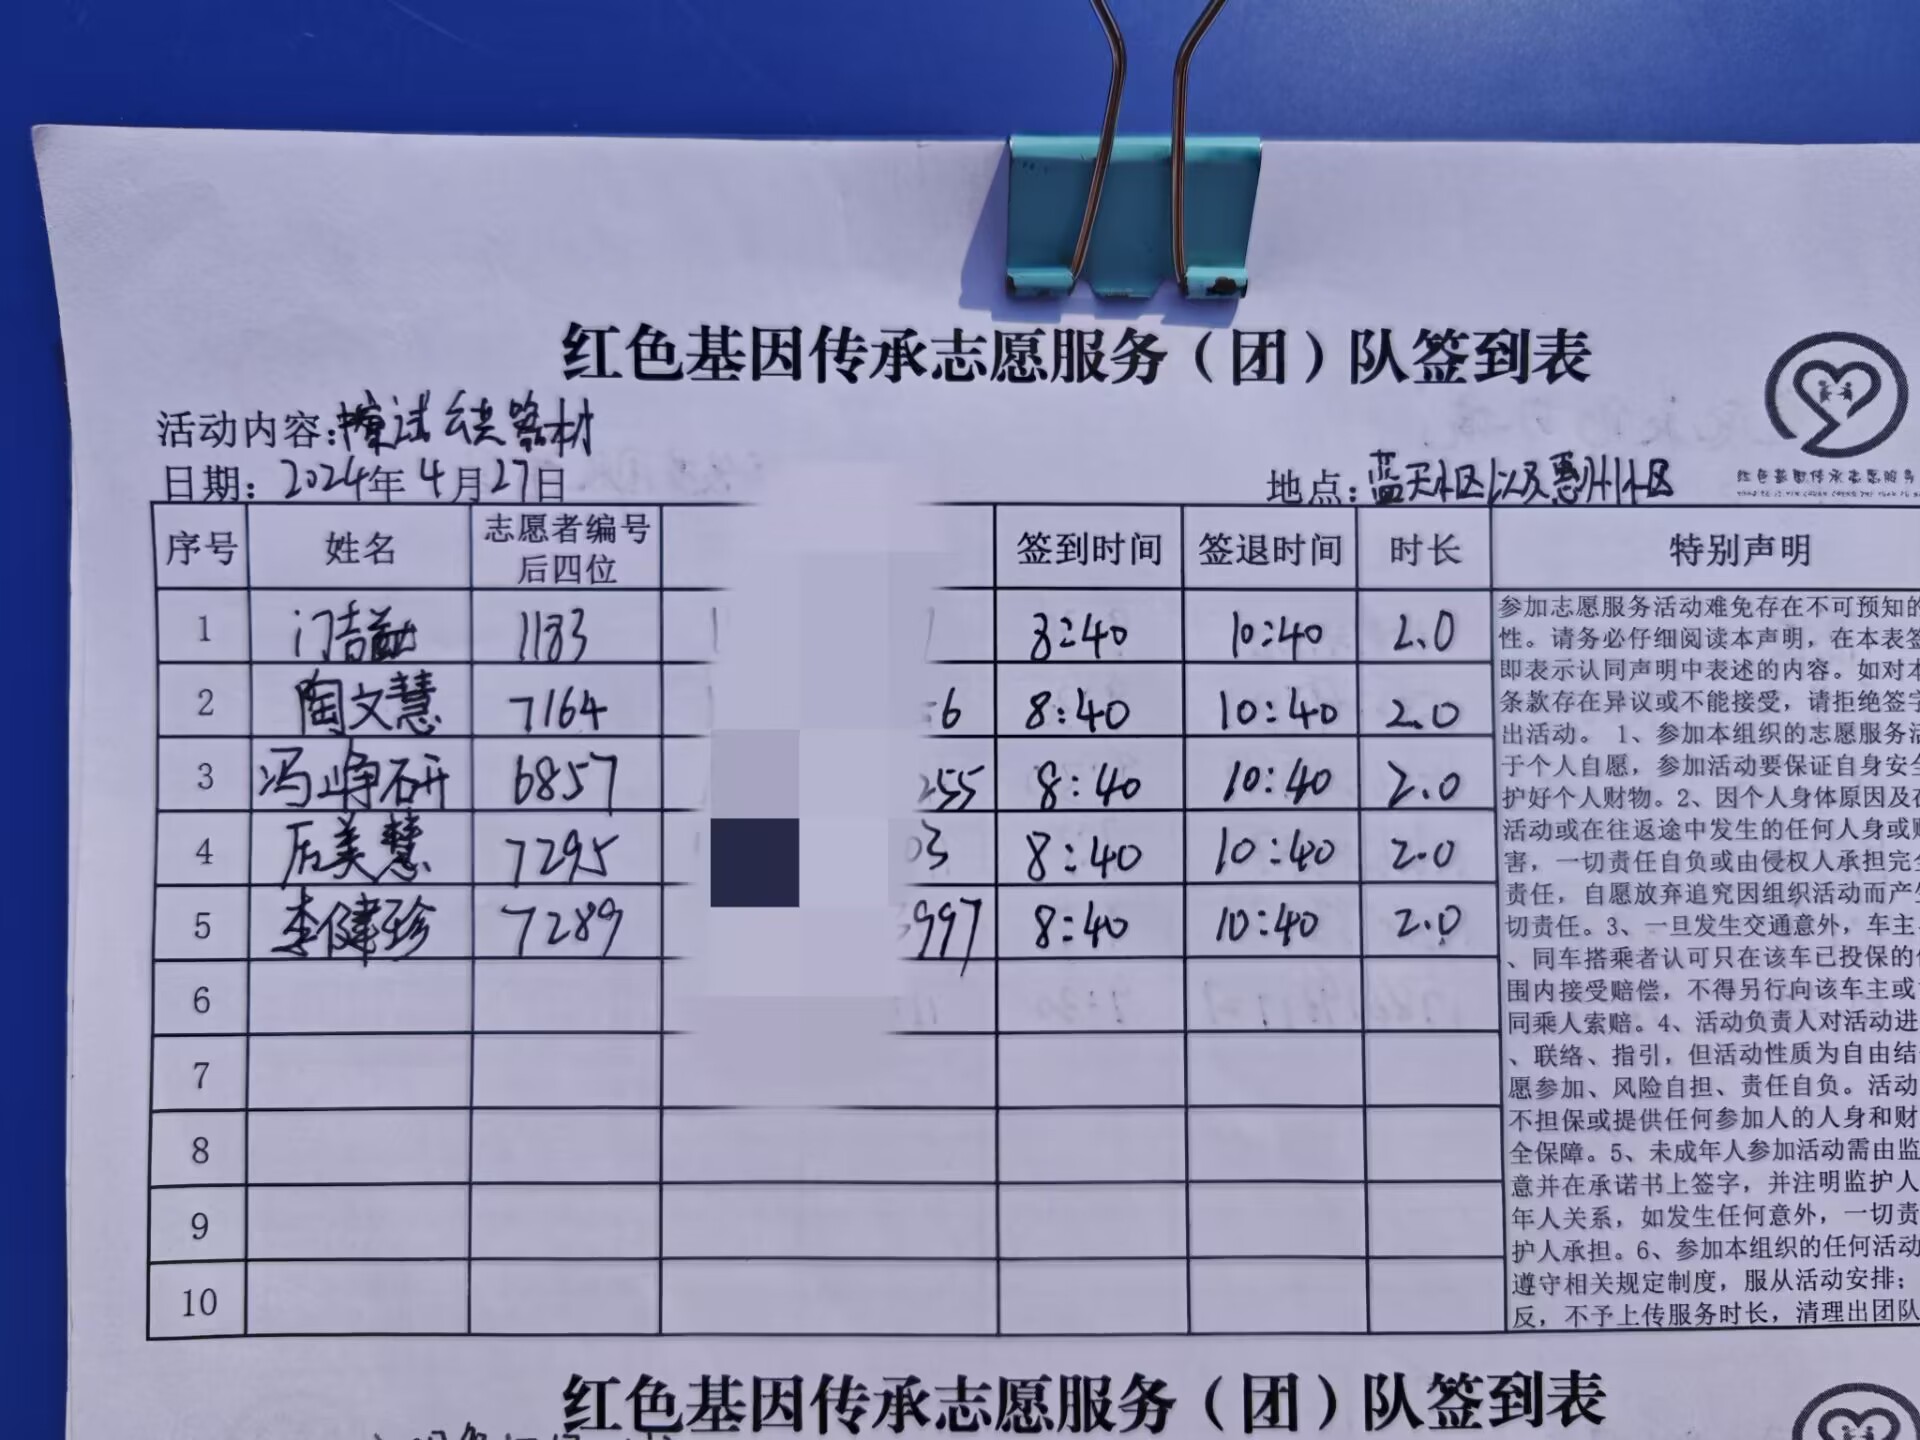 红色基因传承志愿服务（团）队签到表
活动内容：擦试公共器材
日期：2024年4月27日
地点：蓝天小区以及惠州小区
序号 姓名 志愿者编号后四位 签到时间 签退时间 时长 特别声明
1 门吉 1183 8:40 10:40 2.0
2 陶文慧 7164 6 8:40 10:40 2.0
3 冯峥研 6857 255 8:40 10:40 2.0
4 后美慧 7295 03 8:40 10:40 2.0
5 李健珍 7289 997 8:40 10:40 2.0
6
7
8
9
10
参加志愿服务活动难免存在不可预知的
性。请务必仔细阅读本声明，在本表签
即表示认同声明中表述的内容。如对本
条款存在异议或不能接受，请拒绝签字
出活动。 1、参加本组织的志愿服务活
于个人自愿，参加活动要保证自身安全
护好个人财物。2、因个人身体原因及在
活动或在往返途中发生的任何人身或财
害，一切责任自负或由侵权人承担完全
责任，自愿放弃追究因组织活动而产生
切责任。3、一旦发生交通意外，车主
、同车搭乘者认可只在该车已投保的
围内接受赔偿，不得另行向该车主或
同乘人索赔。4、活动负责人对活动进
、联络、指引，但活动性质为自由结
愿参加、风险自担、责任自负。活动
不担保或提供任何参加人的人身和财
全保障。5、未成年人参加活动需由监
意并在承诺书上签字，并注明监护人
年人关系，如发生任何意外，一切责
护人承担。6、参加本组织的任何活动
遵守相关规定制度，服从活动安排；
反，不予上传服务时长，清理出团队
红色基因传承志愿服务（团）队签到表